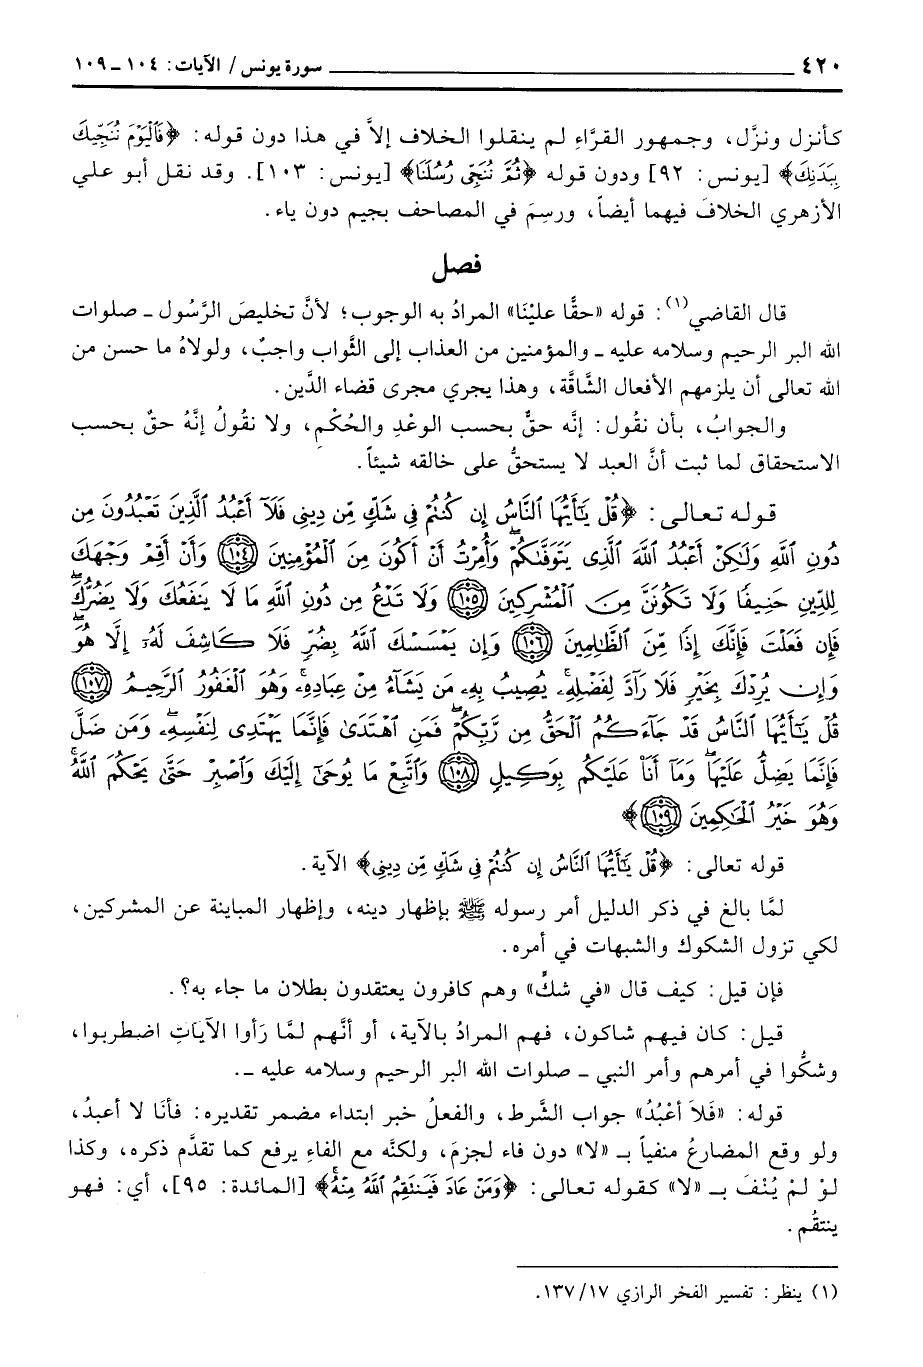 ٤٢٠ سورة يونس / الآيات: ١٠٤ ـ ١٠٩
كأنزل ونزَّل، وجمهور القرَّاءِ لم ينقلوا الخلاف إلاَّ في هذا دون قوله: ﴿فَٱلْيَوْمَ نُنَجِّيكَ
بِبَدَنِكَ﴾ [يونس: ٩٢] ودون قوله ﴿ثُمَّ نُنَجِّى رُسُلَنَا﴾ [يونس: ١٠٣]. وقد نقل أبو علي
الأزهري الخلافَ فيهما أيضاً، ورسِمَ في المصاحف بجيم دون ياء.
فصل
قال القاضي(١): قوله «حقًّا عليْنَا» المرادُ به الوجوب؛ لأنَّ تخليصَ الرَّسُول ـ صلوات
الله البر الرحيم وسلامه عليه ـ والمؤمنين من العذاب إلى الثَّواب واجبٌ، ولولاهُ ما حسن من
الله تعالى أن يلزمهم الأفعال الشَّاقَّة، وهذا يجري مجرى قضاء الدَّين.
والجوابُ، بأن نقُول: إنَّه حقٌّ بحسب الوعْدِ والحُكْمِ، ولا نقُولُ إنَّهُ حقٌ بحسب
الاستحقاق لما ثبت أنَّ العبد لا يستحقُّ على خالقه شيئاً.
قوله تعالى: ﴿قُلْ يَٰٓأَيُّهَا ٱلنَّاسُ إِن كُنتُمْ فِى شَكٍّ مِّن دِينِى فَلَآ أَعْبُدُ ٱلَّذِينَ تَعْبُدُونَ مِن
دُونِ ٱللَّهِ وَلَٰكِنْ أَعْبُدُ ٱللَّهَ ٱلَّذِى يَتَوَفَّىٰكُمْ ۖ وَأُمِرْتُ أَنْ أَكُونَ مِنَ ٱلْمُؤْمِنِينَ ﴿١٠٤﴾ وَأَنْ أَقِمْ وَجْهَكَ
لِلدِّينِ حَنِيفًا وَلَا تَكُونَنَّ مِنَ ٱلْمُشْرِكِينَ ﴿١٠٥﴾ وَلَا تَدْعُ مِن دُونِ ٱللَّهِ مَا لَا يَنفَعُكَ وَلَا يَضُرُّكَ ۖ
فَإِن فَعَلْتَ فَإِنَّكَ إِذًا مِّنَ ٱلظَّٰلِمِينَ ﴿١٠٦﴾ وَإِن يَمْسَسْكَ ٱللَّهُ بِضُرٍّ فَلَا كَاشِفَ لَهُۥٓ إِلَّا هُوَ ۖ
وَإِن يُرِدْكَ بِخَيْرٍ فَلَا رَآدَّ لِفَضْلِهِۦ ۚ يُصِيبُ بِهِۦ مَن يَشَآءُ مِنْ عِبَادِهِۦ ۚ وَهُوَ ٱلْغَفُورُ ٱلرَّحِيمُ ﴿١٠٧﴾
قُلْ يَٰٓأَيُّهَا ٱلنَّاسُ قَدْ جَآءَكُمُ ٱلْحَقُّ مِن رَّبِّكُمْ ۖ فَمَنِ ٱهْتَدَىٰ فَإِنَّمَا يَهْتَدِى لِنَفْسِهِۦ ۖ وَمَن ضَلَّ
فَإِنَّمَا يَضِلُّ عَلَيْهَا ۖ وَمَآ أَنَا۠ عَلَيْكُم بِوَكِيلٍ ﴿١٠٨﴾ وَٱتَّبِعْ مَا يُوحَىٰٓ إِلَيْكَ وَٱصْبِرْ حَتَّىٰ يَحْكُمَ ٱللَّهُ ۚ
وَهُوَ خَيْرُ ٱلْحَٰكِمِينَ ﴿١٠٩﴾﴾
قوله تعالى: ﴿قُلْ يَٰٓأَيُّهَا ٱلنَّاسُ إِن كُنتُمْ فِى شَكٍّ مِّن دِينِى﴾ الآية.
لمَّا بالغ في ذكر الدليل أمر رسوله ﷺ بإظهار دينه، وإظهار المباينة عن المشركين،
لكي تزول الشكوك والشبهات في أمره.
فإن قيل: كيف قال «في شكٍّ» وهم كافرون يعتقدون بطلان ما جاء به؟.
قيل: كان فيهم شاكون، فهم المرادُ بالآية، أو أنَّهم لمَّا رَأوا الآيَاتِ اضطربوا،
وشكُّوا في أمرهم وأمر النبي ـ صلوات الله البر الرحيم وسلامه عليه ـ.
قوله: «فَلاَ أعْبُدُ» جواب الشَّرط، والفعلُ خبر ابتداء مضمر تقديره: فأنَا لا أعبدُ،
ولو وقع المضارعُ منفياً بـ «لا» دون فاء لجزمَ، ولكنَّه مع الفاءِ يرفع كما تقدَّم ذكره، وكذا
لوْ لمْ يُنْفَ بـ «لا» كقوله تعالى: ﴿وَمَنْ عَادَ فَيَنتَقِمُ ٱللَّهُ مِنْهُ ۗ﴾ [المائدة: ٩٥]، أي: فهو
ينتقُم.
(١) ينظر: تفسير الفخر الرازي ١٧/١٣٧.